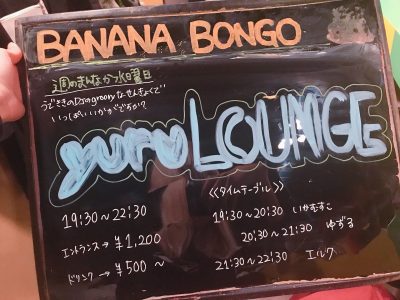 BANANA BONGO
週のまんなか水曜日
うでききのDJがgroovyなせんきょくで
いっぱいいかがですか?
yuru LOUNGE
19:30~22:30
エントランス→¥1,200
ドリンク→¥500~
《タイムテーブル》
19:30~20:30 いかむすこ
20:30~21:30 ゆずる
21:30~22:30 エルク